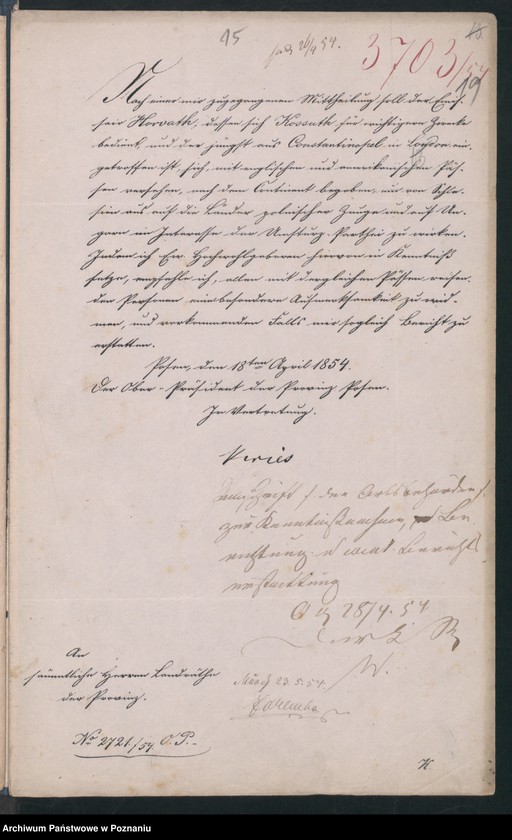 15
3703/54
19
Nach einer mir zugegangenen Mittheilung soll der Emis-
sair Horvath, dessen sich Kossuth für wichtigere Zwecke
bedient, und der jüngst aus Constantinopel in London ein-
getroffen ist, sich, mit englischen und amerikanischen Päs-
sen versehen, nach dem Continent begeben, um von Schle-
sien aus auf die Länder polnischer Zunge und auf Un-
garn im Interesse der Umsturz-Parthei zu wirken.
Indem ich Ew. Hochwohlgeboren hiervon in Kenntniß
setze, empfehle ich, allen mit dergleichen Pässen reisen-
den Personen eine besondere Aufmerksamkeit zu wid-
men, und vorkommenden Falls mir sogleich Bericht zu
erstatten.
Posen, den 18ten April 1854.
Der Ober-Präsident der Provinz Posen.
In Vertretung.
Abschrift den Ortsbehörden
zur Kenntnißnahme, Be-
achtung u Berichts
erstattung
28/4. 54
An
sämmtliche Herren Landräthe
der Provinz.
23.5.54.
No 2721/54 O.P.
Archiwum Państwowe w Poznaniu